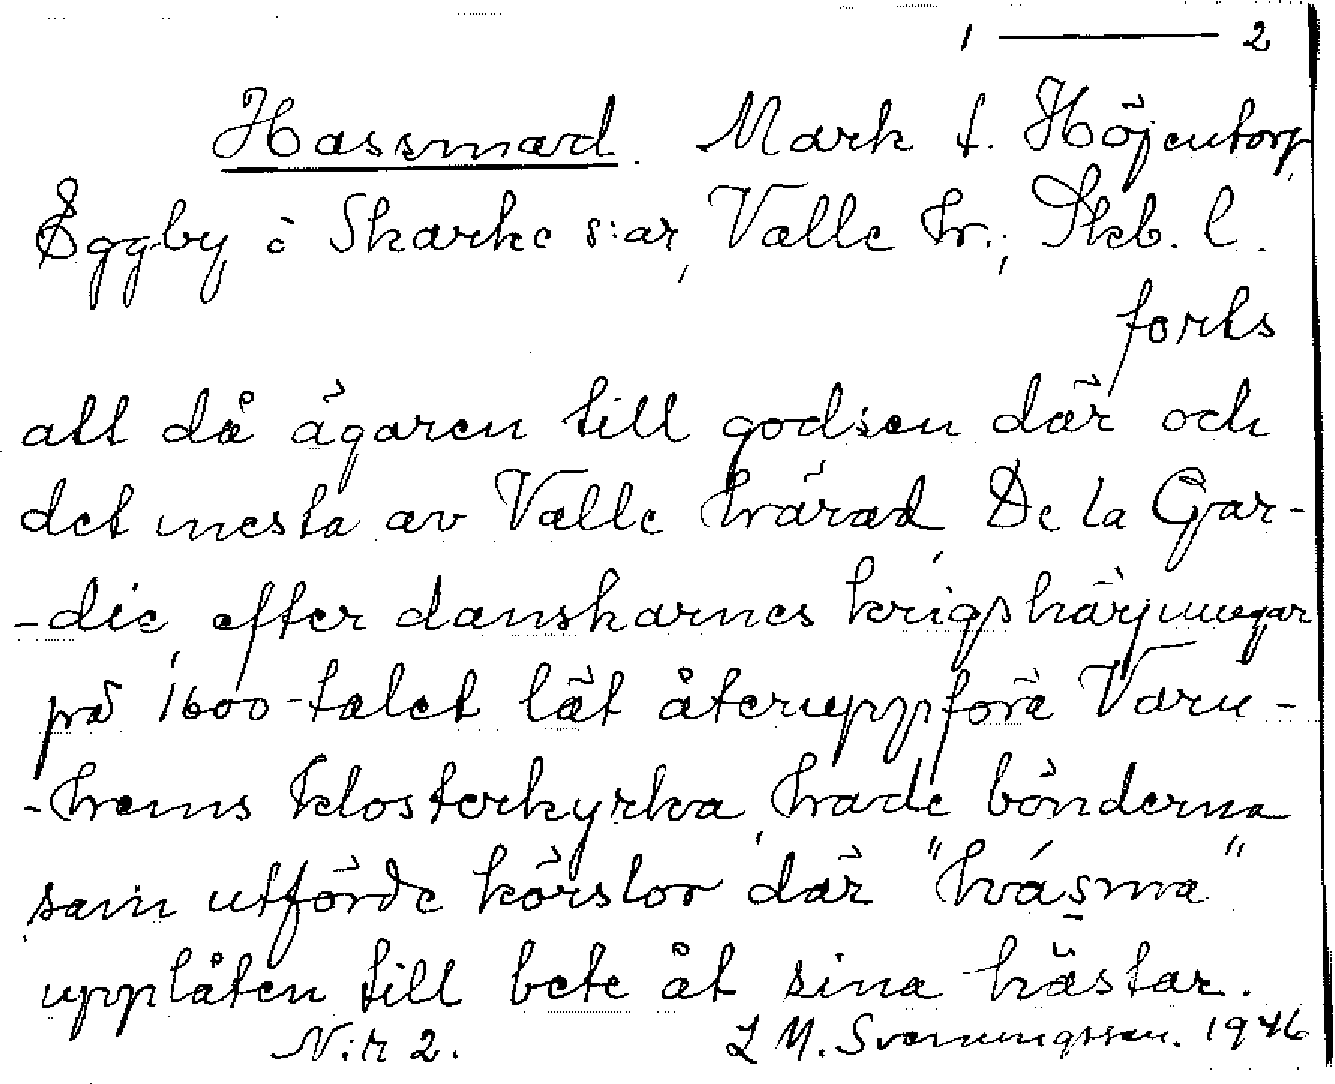 1 — 2
Hassmad. Mark t. Höjentorp
Eggby o Skarke s:ar, Valle hr., Skb. l.
forts
att då ägaren till godsen där och
det mesta av Valle härad, De la Gar-
-die, efter danskarnes krigshärjningar
på 1600-talet lät återuppföra Varn-
-hems klosterkyrka, hade bönderna
som utförde körslor där "hásma"
upplåten till bete åt sina hästar.
N:r 2. L M. Svenungsson. 1946